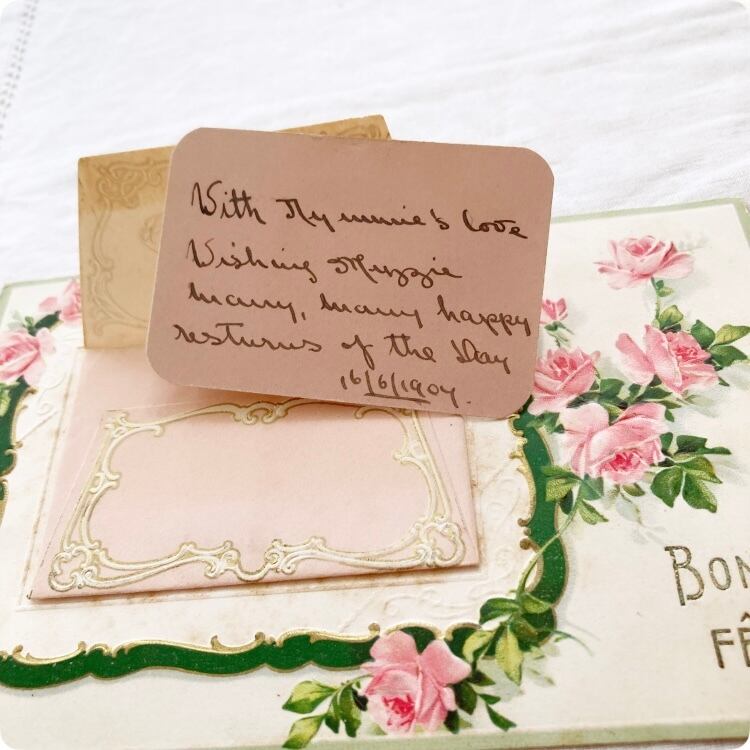 With Nymmie's love
Wishing Muzzie
many, many happy
returns of the day
16/6/1907.
BON
FÊ